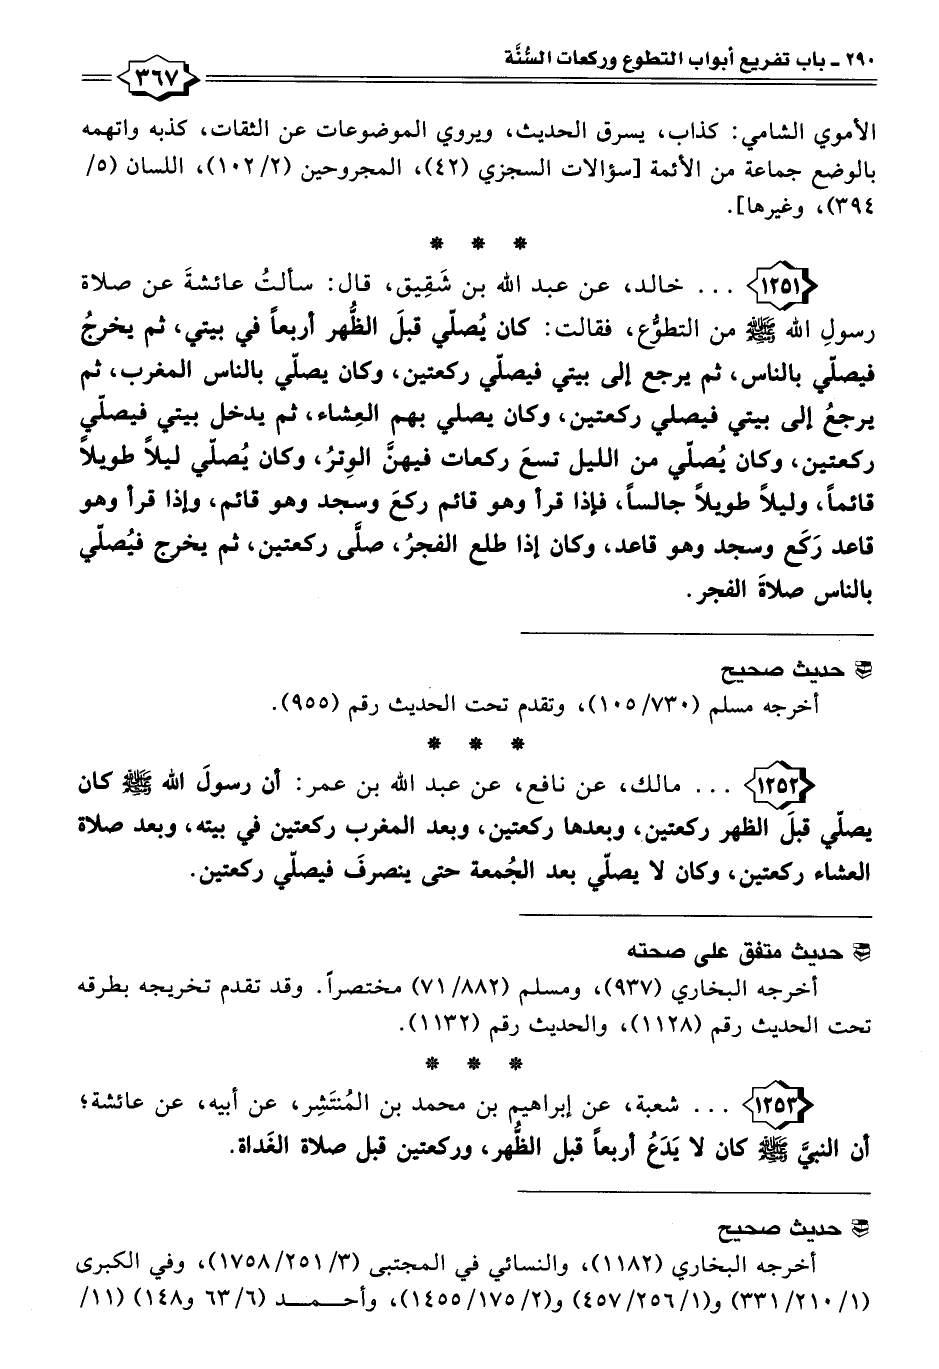 ٢٩٠ ـ باب تفريع أبواب التطوع وركعات السُنَّة
٣٦٧
الأموي الشامي: كذاب، يسرق الحديث، ويروي الموضوعات عن الثقات، كذبه واتهمه
بالوضع جماعة من الأئمة [سؤالات السجزي (٤٢)، المجروحين (١٠٢/٢)، اللسان (٥/
٣٩٤)، وغيرها].
* * *
١٢٥١ ... خالد، عن عبد الله بن شَقِيق، قال: سألتُ عائشةَ عن صلاة
رسولِ الله ﷺ من التطوُّع، فقالت: كان يُصلّي قبلَ الظُّهر أربعاً في بيتي، ثم يخرجُ
فيصلّي بالناس، ثم يرجع إلى بيتي فيصلّي ركعتين، وكان يصلّي بالناس المغرب، ثم
يرجعُ إلى بيتي فيصلي ركعتين، وكان يصلي بهم العِشاء، ثم يدخل بيتي فيصلّي
ركعتين، وكان يُصلّي من الليل تسعَ ركعات فيهنَّ الوِترُ، وكان يُصلّي ليلاً طويلاً
قائماً، وليلاً طويلاً جالساً، فإذا قرأ وهو قائم ركعَ وسجد وهو قائم، وإذا قرأ وهو
قاعد رَكَع وسجد وهو قاعد، وكان إذا طلع الفجرُ، صلَّى ركعتين، ثم يخرج فيُصلّي
بالناس صلاةَ الفجر.
حديث صحيح
أخرجه مسلم (١٠٥/٧٣٠)، وتقدم تحت الحديث رقم (٩٥٥).
* * *
١٢٥٢ ... مالك، عن نافع، عن عبد الله بن عمر: أن رسولَ الله ﷺ كان
يصلّي قبلَ الظهر ركعتين، وبعدها ركعتين، وبعد المغرب ركعتين في بيته، وبعد صلاة
العشاء ركعتين، وكان لا يصلّي بعد الجُمعة حتى ينصرفَ فيصلّي ركعتين.
حديث متفق على صحته
أخرجه البخاري (٩٣٧)، ومسلم (٧١/٨٨٢) مختصراً. وقد تقدم تخريجه بطرقه
تحت الحديث رقم (١١٢٨)، والحديث رقم (١١٣٢).
* * *
١٢٥٣ ... شعبة، عن إبراهيم بن محمد بن المُنتَشِر، عن أبيه، عن عائشة؛
أن النبيَّ ﷺ كان لا يَدَعُ أربعاً قبل الظُّهر، وركعتين قبل صلاة الغَداة.
حديث صحيح
أخرجه البخاري (١١٨٢)، والنسائي في المجتبى (١٧٥٨/٢٥١/٣)، وفي الكبرى
(٣٣١/٢١٠/١) و(٤٥٧/٢٥٦/١) و(١٤٥٥/١٧٥/٢)، وأحمد (٦٣/٦ و١٤٨) (١١/